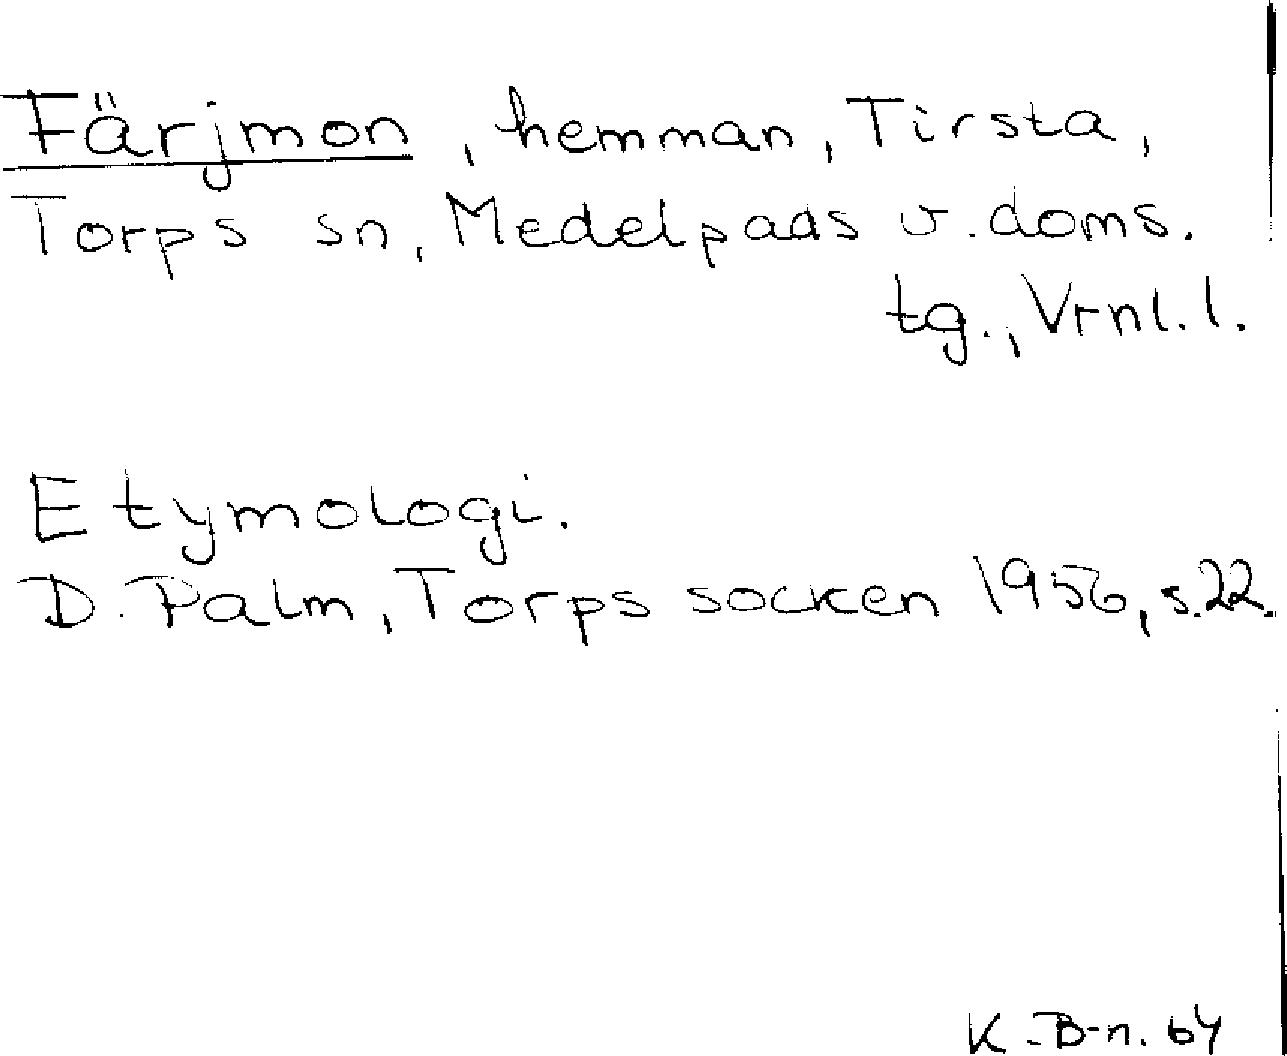 Färjmon, hemman, Tirsta,
Torps sn, Medelpads v. doms.
tg., Vrnl. l.
Etymologi.
D. Palm, Torps socken 1956, s.22.
K.B-n. 64